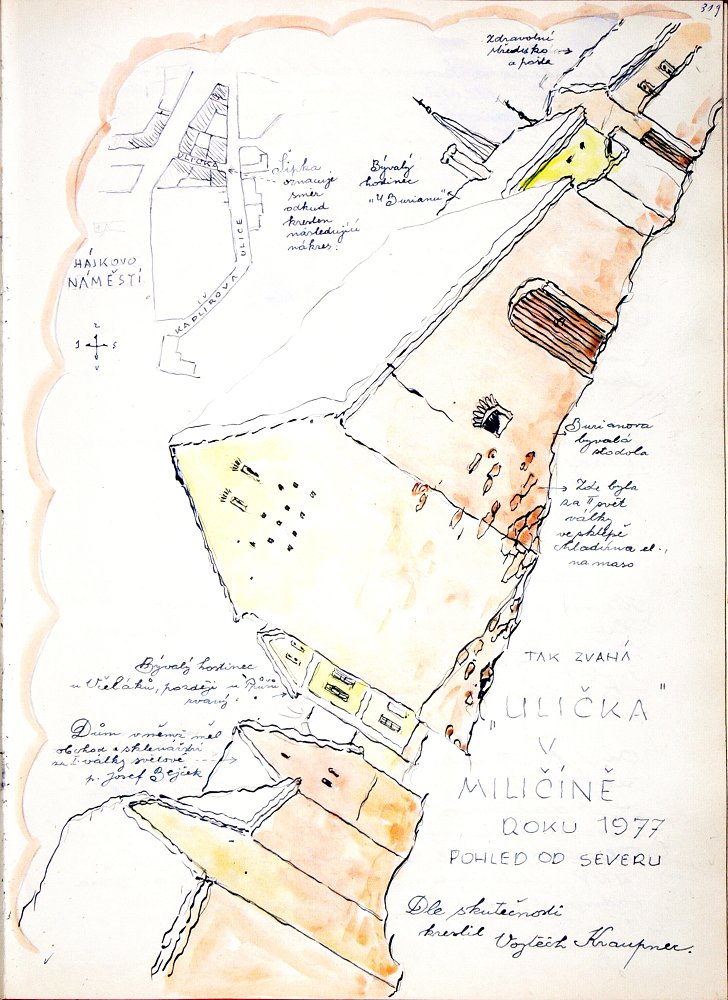 319
Zdravotní
středisko
a pošta
Šipka
označuje
směr
odkud
kreslen
následující
nákres.
Bývalý
hostinec
"U Burianů"
ULIČKA
ULICE
KADLÍROVA
HÁJKOVO
NÁMĚSTÍ
Z
J S
V
Burianova
bývalá
stodola
Zde byla
za II svět
války
ve sklepě
chladírna el.
na maso
Bývalý hostinec
později u
Dům v němž měl
obchod a sklenářství
za I. války světové
p. Josef Bejček
TAK ZVANÁ
"ULIČKA"
V
MILIČÍNĚ
ROKU 1977
POHLED OD SEVERU
Dle skutečnosti
kreslil Vojtěch Kraupner.